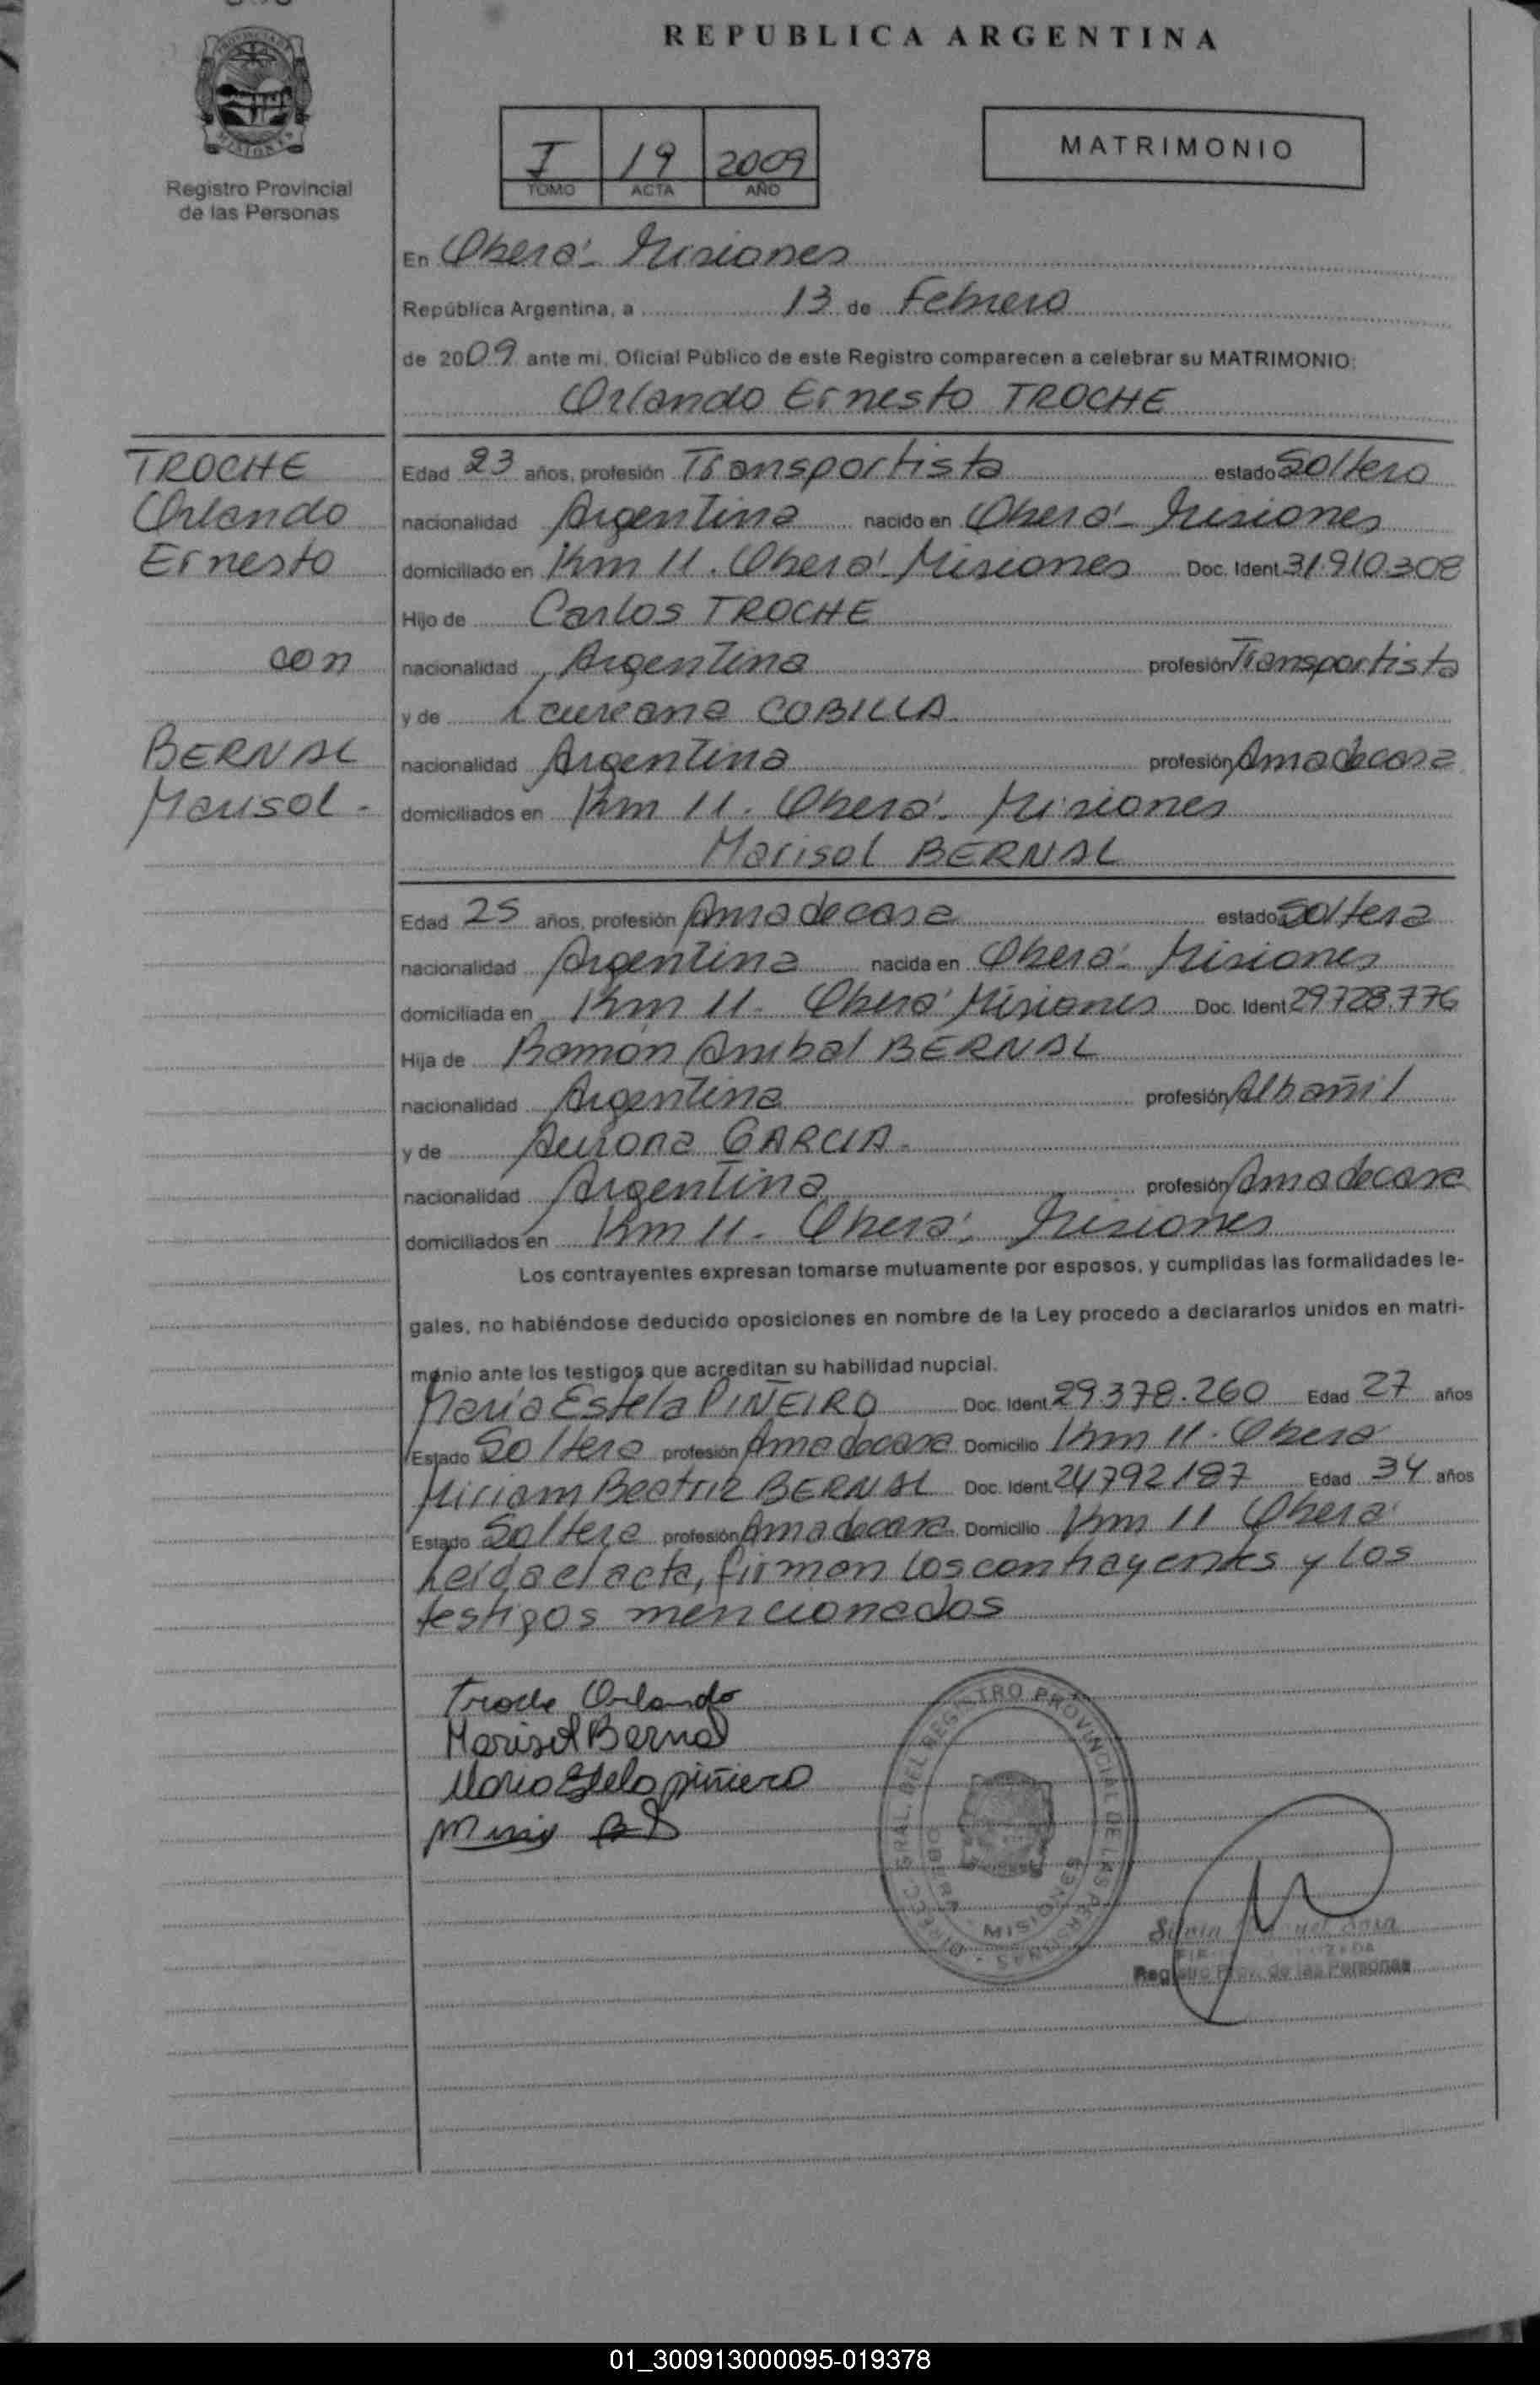 REPUBLICA ARGENTINA
PROVINCIA DE MISIONES
Registro Provincial
de las Personas
I 19 2009
TOMO ACTA AÑO
MATRIMONIO
En Oberá - Misiones
República Argentina, a 13 de Febrero
de 2009 ante mi, Oficial Público de este Registro comparecen a celebrar su MATRIMONIO:
Orlando Ernesto TROCHE
TROCHE
Orlando
Ernesto
con
BERNAL
Marisol -
Edad 23 años, profesión Transportista estado Soltero
nacionalidad Argentina nacido en Oberá - Misiones
domiciliado en Km 11. Oberá - Misiones Doc. Ident 31.910.308
Hijo de Carlos TROCHE
nacionalidad Argentina profesión Transportista
y de Laureana COBILLA
nacionalidad Argentina profesión Ama de casa
domiciliados en Km 11. Oberá - Misiones
Marisol BERNAL
Edad 25 años, profesión Ama de casa estado Soltera
nacionalidad Argentina nacida en Oberá - Misiones
domiciliada en Km 11. Oberá Misiones Doc. Ident 29.728.776
Hija de Ramón Anibal BERNAL
nacionalidad Argentina profesión Albañil
y de Aurora GARCIA.
nacionalidad Argentina profesión Ama de casa
domiciliados en Km 11. Oberá, Misiones
Los contrayentes expresan tomarse mutuamente por esposos, y cumplidas las formalidades le-
gales, no habiéndose deducido oposiciones en nombre de la Ley procedo a declararlos unidos en matri-
monio ante los testigos que acreditan su habilidad nupcial.
María Estela PIÑEIRO Doc. Ident 29.378.260 Edad 27 años
Estado Soltera profesión Ama de casa Domicilio Km 11. Oberá
Miriam Beatriz BERNAL Doc. Ident. 24792187 Edad 34 años
Estado Soltera profesión Ama de casa Domicilio Km 11 Oberá
Leída el acta, firman los contrayentes y los
testigos mencionados
Troche Orlando
Marisol Bernal
Maria Estela piñiero
DIRECC. GRAL. DEL REGISTRO PROVINCIAL DE LAS PERSONAS
OBERA - MISIONES
Registro Prov. de las Personas
01_300913000095-019378